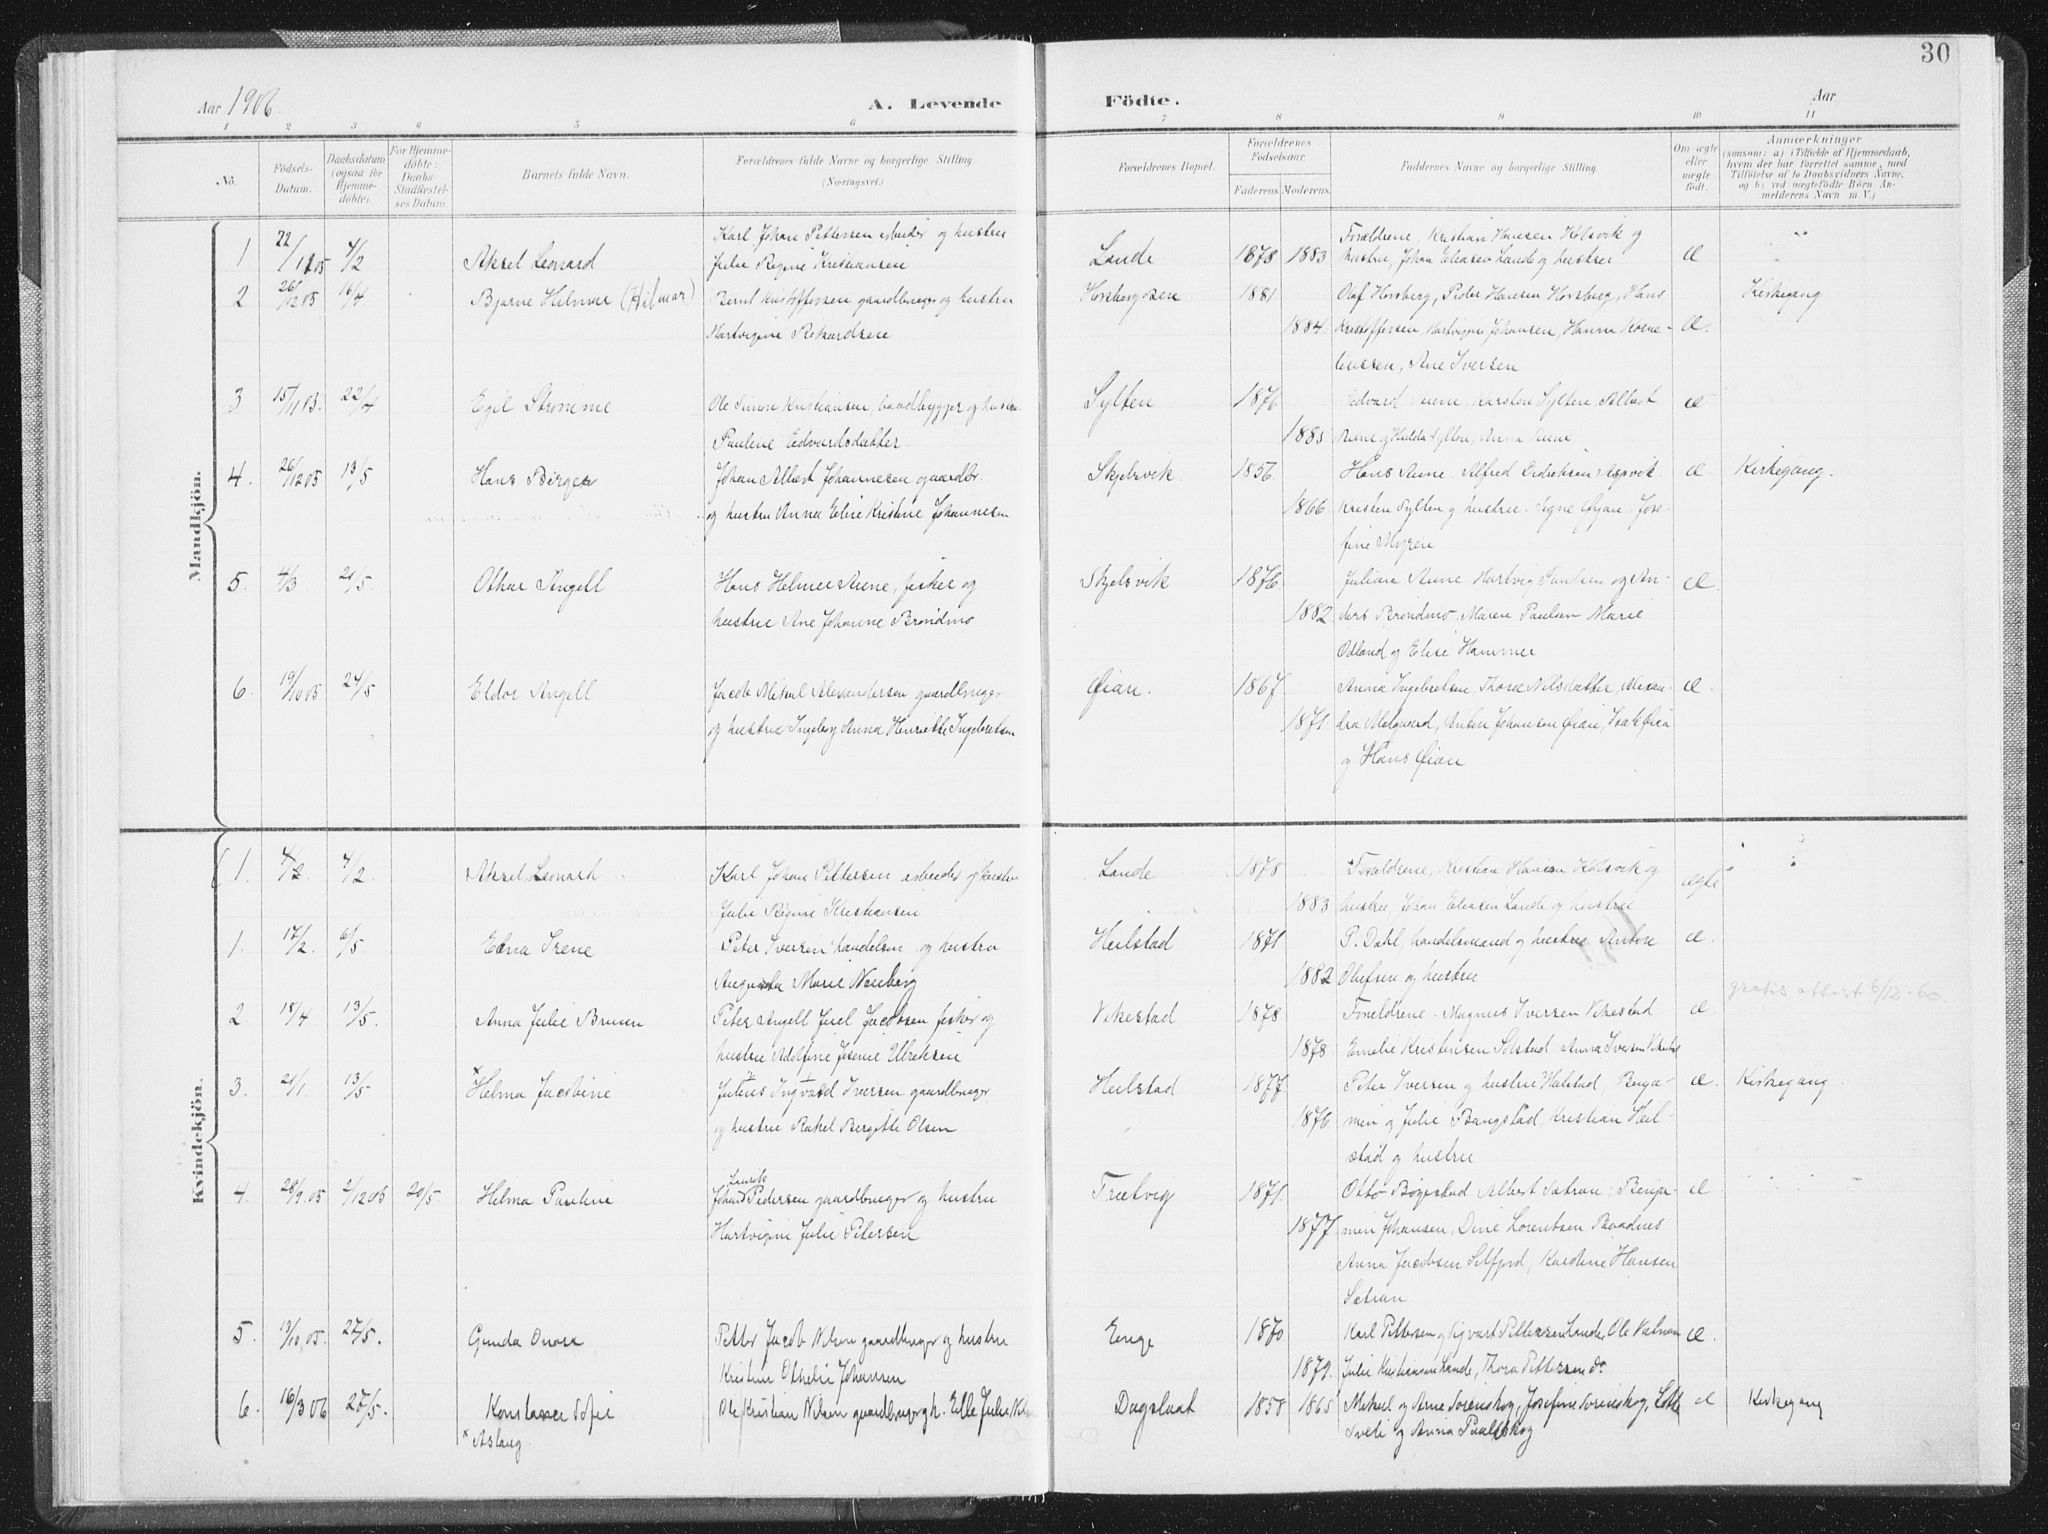 30
Aar 1906
A. Levende
Födte.
Aar
1 2 3 4 5 6 7 8 9 10 11
No.
Födsels-
Datum.
Daabsdatum
(ogsaa for
Hjemme-
döbte).
For Hjemme-
döbte:
Daabs-
Stadfæstel-
ses Datum
Barnets fulde Navn.
Forældrenes fulde Navne og borgerlige Stilling
(Næringsvei.)
Forældrenes Bopæl.
Forældrenes
Födselsaar.
Faderens. Moderens.
Faddernes Navne og borgerlige Stilling.
Om ægte
eller
uægte
födt.
Anmærkninger
(saasom: a) i Tilfælde af Hjemmedaab,
hvem der har forrettet samme, med
Tilföielse af to Daabsvidners Navne,
og b) ved uægtefödte Börn An-
melderens Navn m. V.)
Mandkjön.
1 22/12 05 4/2 Aksel Leonard
Karl Johan Pettersen arbeider og hustru
Julie Regine Kristiansen
Lande 1878 1883
Forældrene, Kristian Hansen Kolsvik og
hustru, Johan Eliasen Lande og hustru
Æ
2 26/12 05 16/4 Bjarne Helmer (Hilmar)
Bernt Kristoffersen gaardbruger og hustru
Hartvigine Rikardsen
Horsbergosen 1881 1884.
Olaf Horsberg, Peder Hansen Horsberg, Hans
Kristoffersen, Hartvigine Johansen, Hanna Korne-
liussen, Ane Iversen
Æ. Kirkegang
3 22/4 Egil Strømme
Ole Simon Kristiansen, baadbygger og hustru
Pauline Edvardsdatter
Sylten 1876 1885
Edvard Aune, Karsten Sylten, Albert
Aune og Hilda Sylten, Anna Aune
Æ
4. 26/12 05 13/5 Hans Birger
Johan Albert Johannesen gaardbr.
og hustru Anna Elise Kristine Johannesen
Skjelsvik. 1856. 1866.
Hans Aune. Alfred Didriksen
Kristen Sylten og hustru. Signe Øyan. Jose-
fine Myren
Æ Kirkegang.
5. 4/3 20/5. Othar Angell
Hans Helmer Aune, fisker og
hustru Ane Johanne Brøndmo
Skjelsvik 1876. 1882
Juliane Aune Hartvig Paulsen og An-
ders Brøndmo. Maren Paulsen Marie
Odland og Elise Hammer
Æ.
6. 19/10 05 24/5 Eldor Angell
Jacob Mikal Alexandersen gaardbruger
og hustru Ingeborg Anna Henriette Ingebretsen
Øian. 1867 1871.
Anna Ingebretsen, Thora Nilsdatter, Alexan-
dra Melgaard, Anton Johansen Øian, Isak Øian
og Hans Øian
Æ.
Kvindekjön.
1. 4/2 Aksel Leonard
Karl Johan Pettersen arbeider og hustru
Julie Regine Kristiansen
Lande 1878 1883
Forældrene, Kristian Hansen Kolsvik og
hustru, Johan Eliasen Lande og hustru
Ægte
1. 17/2. 6/5 Edna Irene
Peter Iversen handelsm. og hustru
Augusta Marie Nenberg
Heilstad 1871 1882
P. Dahl, handelsmand og hustru Anton
Olufsen og hustru
Æ.
gratis attest 6/12-60
2. 18/4 13/5. Anna Julie Bruun
Peter Angell Juel Jacobsen fisker og
hustru Adolfine Josine Ulriksen
Vikestad 1878. 1878
Forældrene. Magnus Iversen Vikestad.
Emelie Kristensen Solstad Anna Iversen Vikestad
Æ.
3. 21/1. 13/5 *Helma Jacobine
Julius Ingvald Iversen gaardbruger
og hustru Rakel Bergitte Olsen
Heilstad 1877 1876
Peter Iversen og hustru Heilstad, Benja-
min og Julie Bangstad, Kristian Heil-
stad og hustru
Æ. Kirkegang.
4. 28/9. 05 2/12 05 20/5. Helma Pauline
Laurits
Johan Pedersen gaardbruger og hustru
Hartvigine Julie Petersen
Trætvig 1871. 1877.
Otto Bøgestad Albert Sætran. Benja-
min Johansen, Dine Lorentsen Baadnes
Anna Jacobsen Selfjord, Karoline Hansen
Sætran
Æ
5. 13/10. 05. 27/5. Gunda Onora
Petter Jacob Nilsen gaardbruger og hustru
Kristine Othelie Johansen
Enge 1870 1879.
Karl Pettersen og Sigvart Pettersen Lande, Ole
Julie Kristiansen Lande, Thora Pettersen do.
Æ.
6. 16/3 06 27/5. Konstance Sofie
* Aslaug
Ole Kristian Nilsen gaardbruger og h. Elle Julie
Dagslaat 1858 1865
Mikael og Arne Sørenskog, Josefine Sørenskog, Lotte
Sveli og Anna Paulskog
Æ Kirkegang